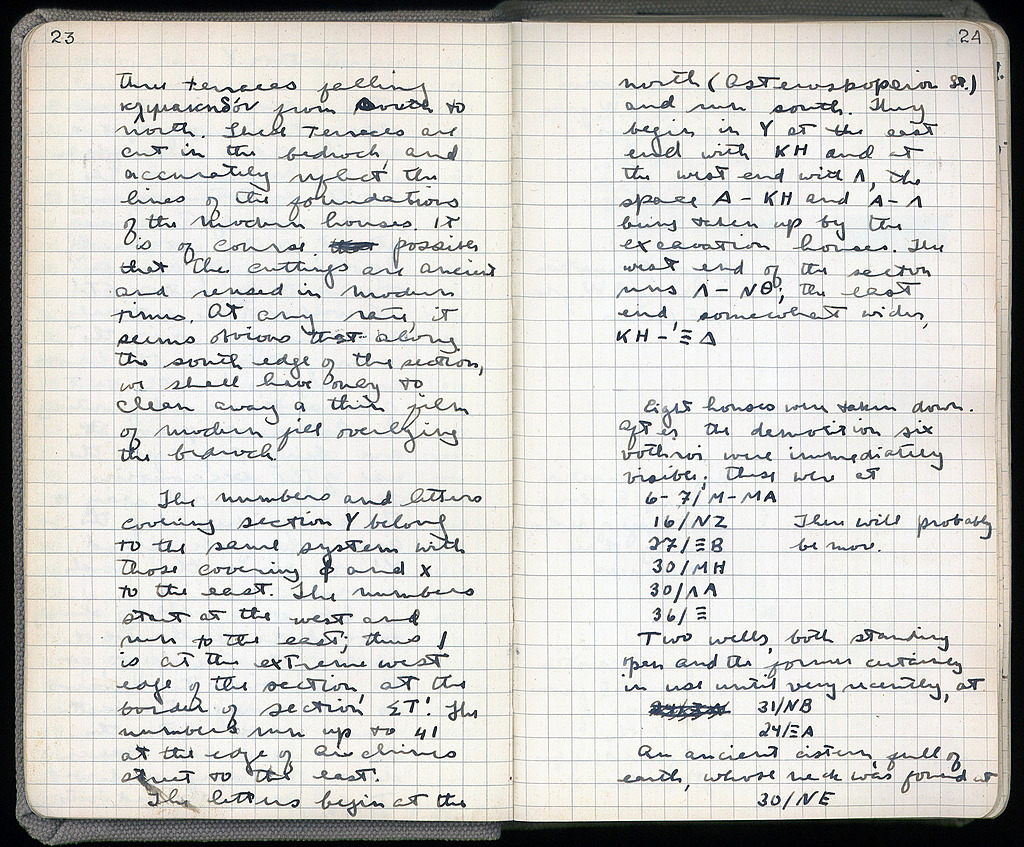 23
three terraces falling
κλιμακηδόν from south to
north. These terraces are
cut in the bedrock, and
accurately reflect the
lines of the foundations
of the modern houses. It
is of course possible
that the cuttings are ancient
and reused in modern
times. At any rate, it
seems obvious that along
the south edge of the section,
we shall have only to
clean away a thin film
of modern fill overlying
the bedrock.
The numbers and letters
covering section Υ belong
to the same system with
those covering Φ and Χ
to the east. The numbers
start at the west and
run to the east; thus 1
is at the extreme west
edge of the section, at the
border of section ΣΤ'. The
numbers run up to 41
at the edge of
street to the east.
The letters begin at the
24
north (Asteroskopeion St.)
and run south. They
begin in Υ at the east
end with ΚΗ and at
the west end with Λ, the
space Α - ΚΗ and Α - Λ
being taken up by the
excavation houses. The
west end of the section
runs Λ - ΝΘ; the east
end, somewhat wider,
ΚΗ - ΞΔ
Eight houses were taken down.
After the demolition six
bothroi were immediately
visible; these were at
6-7/Μ-ΜΑ
16/ΝΖ There will probably
27/ΞΒ be more.
30/ΜΗ
30/ΛΑ
36/Ξ
Two wells, both standing
open and the former certainly
in use until very recently, at
31/ΝΒ
24/ΞΑ
An ancient cistern, full of
earth, whose neck was found at
30/ΝΕ